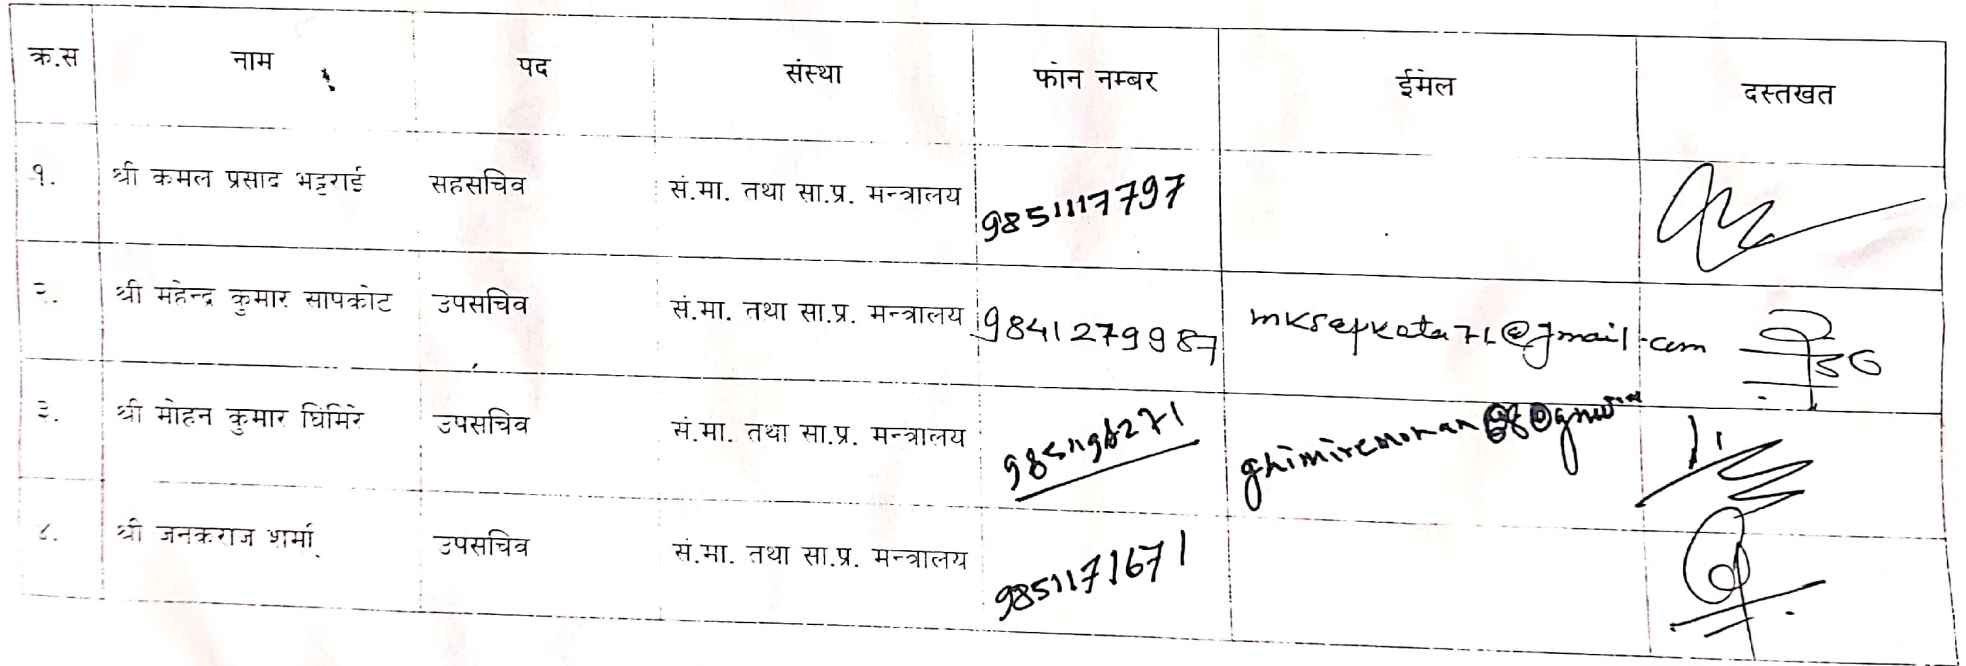 क्र.स नाम पद संस्था फोन नम्बर ईमेल दस्तखत
१. श्री कमल प्रसाद भट्टराई सहसचिव सं.मा. तथा सा.प्र. मन्त्रालय 9851117797
२. श्री महेन्द्र कुमार सापकोट उपसचिव सं.मा. तथा सा.प्र. मन्त्रालय 9841279987 mksapkota71@gmail.com
३. श्री मोहन कुमार घिमिरे उपसचिव सं.मा. तथा सा.प्र. मन्त्रालय
४. श्री जनकराज शर्मा उपसचिव सं.मा. तथा सा.प्र. मन्त्रालय 9851171671